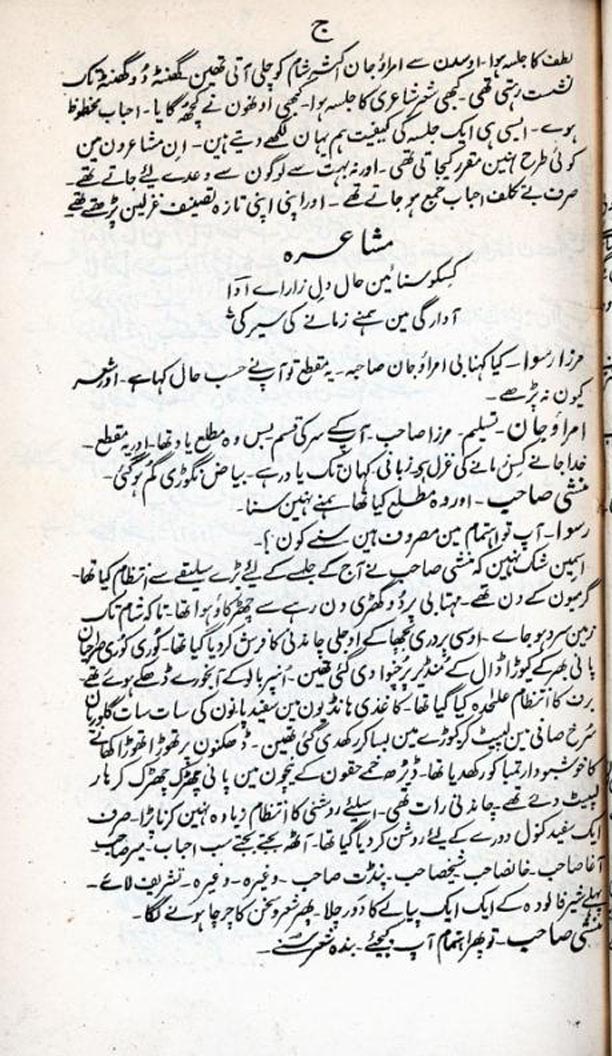 ج
لطف کا جلسہ ہوا۔ اوسدن سے امراؤ جان اکثر شام کو چلی آتی تھین گھنٹہ دو گھنٹہ تک
نشست رہتی تھی۔ کبھی شعر شاعری کا جلسہ ہوا۔ کبھی اوٖنھون نے کچھ گایا۔ احباب محظوظ
ہوے۔ ایسی ہی ایک جلسہ کی کیفیت ہم یہان لکھے دیتے ہین۔ اِن مشاعرون مین
کوئی طرح نہین مقرر کیجاتی تھی۔ اور نہ بہت سے لوگون سے وعدے لیئے جاتے تھے۔
صرف بے تکلف احباب جمع ہو جاتے تھے۔ اور اپنی اپنی تازہ تصنیف غزلین پڑھتے تھے
مشاعرہ
کسکو سنائین حال دلِ زار اے اَدا
آوارگی مین ہمنے زمانے کی سیر کی
مرزا رسوا۔ کیا کہنا بی امراؤ جان صاحبہ۔ یہ مقطع تو آپنے حسب حال کہا ہے۔ اور شعر
کیون نہ پڑھے۔
امراؤ جان۔ تسلیم۔ مرزا صاحب۔ آپکے سر کی قسم بس وہ مطلع یاد تھا۔ اور یہ مقطع۔
خدا جانے کس زمانے کی غزل ہے زبانی کہان تک یاد رہے۔ بیاض نگوڑی گم ہو گئی۔
منشی صاحب۔ اور وہ مطلع کیا تھا ہمنے نہین سنا۔
رسوا۔ آپ تو اہتمام مین مصروف ہین سنے کون؟۔
اسمین شک نہین کہ منشی صاحب نے آج کے جلسے کے لیئے بڑے سلیقے سے انتظام کیا تھا۔
گرمیون کے دن تھے۔ مہتابی پر دو گھڑی دن رہے سے چھڑکاؤ ہوا تھا۔ تاکہ شام تک
زمین سرد ہو جاے۔ اوسی پر دری بچھا کے اوجلی چاندنی کا فرش کر دیا گیا تھا۔ کوری کوری صراحیان
پانی بھر کے کیوڑا ڈال کے مُنڈیر پر چُنوا دی گئی تھین۔ اُنپر بالو کے آبخورے ڈھکے ہوئے تھے
برف کا انتظام علٰحدہ کیا گیا تھا۔ کاغذی ہانڈیون مین سفید پانون کی سات سات گلوریان
سُرخ صافی مین لپیٹ کر کیوڑے مین بسا کر رکھدی گئی تھین۔ ڈھکنون پر تھوڑا تھوڑا کھانے
کا خوشبودار تمباکو رکھدیا تھا۔ ڈیڑھ خمے حقون کے نیچون مین پانی چھڑک چھڑک کر ہار
لپیٹ دئے تھے۔ چاندنی رات تھی۔ اسلیئے روشنی کا انتظام زیادہ نہین کرنا پڑا۔ صرف
ایک سفید کنول دورے کے لیئے روشن کر دیا گیا تھا۔ آٹھ بجتے بجتے سب احباب۔ میر صاحب
آغا صاحب۔ خانصاحب شیخصاحب۔ پنڈت صاحب۔ وغیرہ۔ وغیرہ۔ تشریف لائے۔
پہلے شیر فالودہ کے ایک ایک پیالے کا دَور چلا۔ پھر شعر و سخن کا چرچا ہونے لگا۔
منشی صاحب۔ تو پھر اہتمام آپ کیجئے۔ بندہ شعر سُنے۔